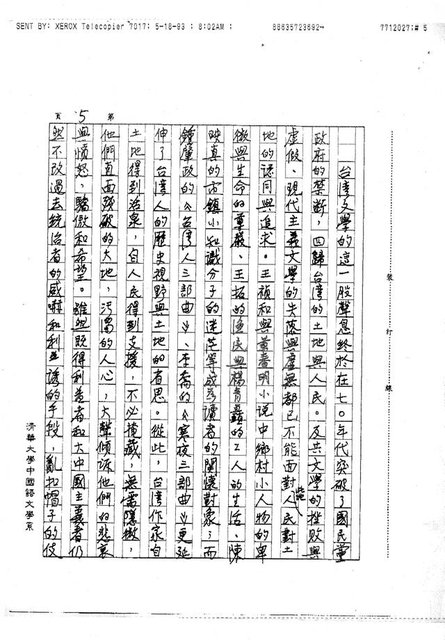 SENT BY: XEROX Telecopier 7017; 5-18-93 ; 8:02AM ;
88635723692→
7712027;# 5
裝 訂 線
台灣文學的這一股聲息終於在七〇年代突破了國民黨
政府的禁斷，回歸台灣的土地與人民。反共文學的挫敗與
虛假、現代主義文學的失陷與虛無都已不能面對人民對土
地的認同與追求。王禎和與黃春明小說中鄉村小人物的卑
微與生命的尊嚴、王拓的漁民與楊青矗的工人的生活、陳
映真的市鎮小知識分子的迷茫等成為讀者的關懷對象；而
鍾肇政的《台灣人三部曲》、李喬的《寒夜三部曲》更延
伸了台灣人的歷史視野與土地的省思。從此，台灣作家自
土地得到活泉，自人民得到支援，不必掩藏，無需隱微，
他們直面殘破的大地，污濁的人心，大聲傾訴他們的悲哀
與憤怒、驕傲和希望。雖然既得利益者和大中國主義者仍
然不改過去統治者的威嚇和利誘的手段，亂扣帽子的伎
第 5 頁
清華大學中國語文學系